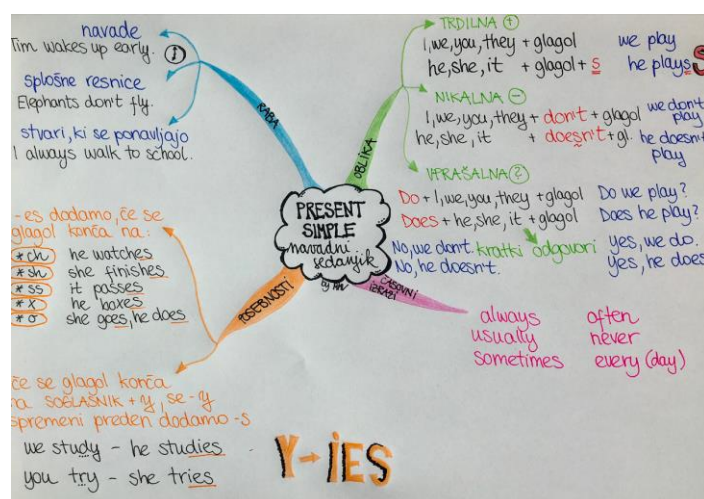 PRESENT
SIMPLE
navadni
sedanjik
RABA
navade
Tim wakes up early.
splošne resnice
Elephants don't fly.
stvari, ki se ponavljajo
I always walk to school.
OBLIKA
TRDILNA +
I, we, you, they + glagol we play
he, she, it + glagol + s he plays
NIKALNA -
I, we, you, they + don't + glagol we don't
play
he, she, it + doesn't + gl. he doesn't
play
VPRAŠALNA ?
Do + I, we, you, they + glagol Do we play?
Does + he, she, it + glagol Does he play?
No, we don't. kratki odgovori Yes, we do.
No, he doesn't. Yes, he does
ČASOVNI
IZRAZI
always often
usually never
sometimes every (day)
POSEBNOSTI
-es dodamo, če se
glagol konča na:
*ch he watches
*sh she finishes
*ss it passes
*x he boxes
*o she goes, he does
če se glagol konča
na SOGLASNIK + y, se -y
spremeni preden dodamo -s
we study - he studies
you try - she tries
Y → IES